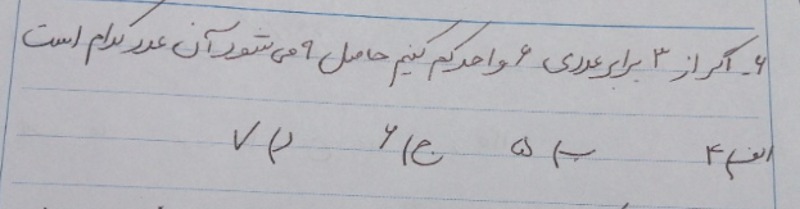 ۶- اگر از ۳ برابر عددی ۶ واحد کم کنیم حاصل ۹ می شود آن عدد کدام است
الف) ۴ ب) ۵ ج) ۶ د) ۷